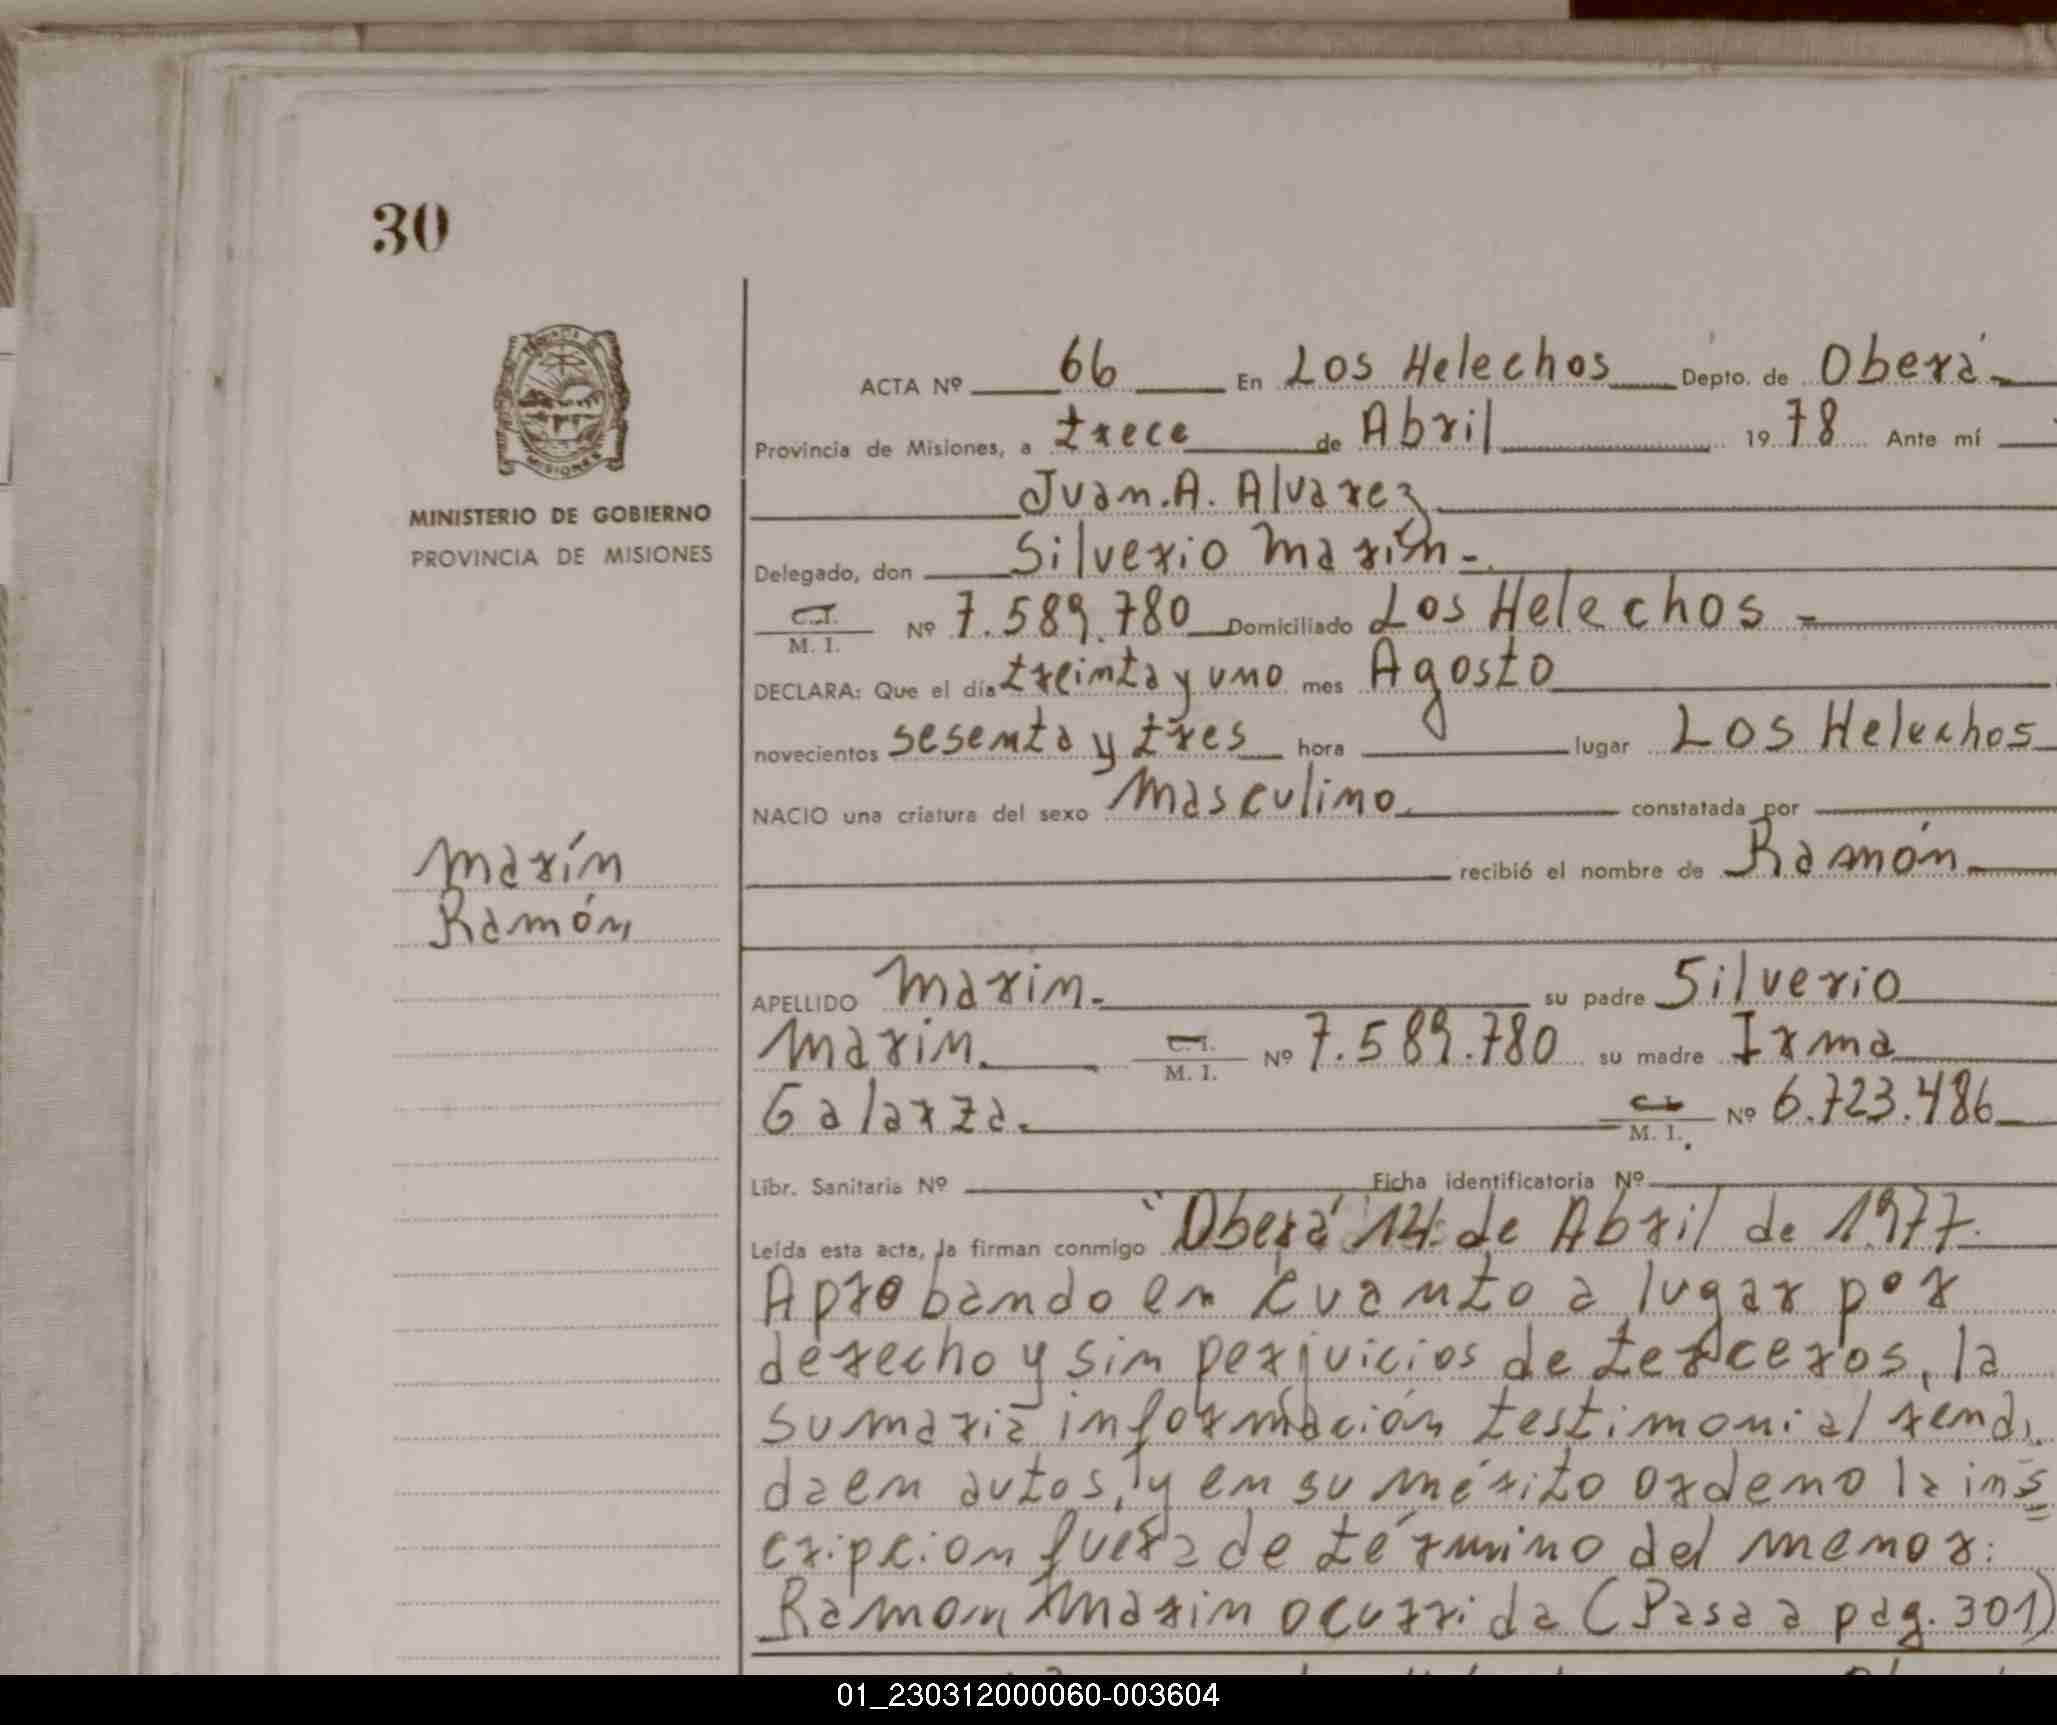 30
MISIONES
MINISTERIO DE GOBIERNO
PROVINCIA DE MISIONES
Marín
Ramón
ACTA Nº 66 En Los Helechos Depto. de Oberá
Provincia de Misiones, a trece de Abril 1978 Ante mí
Juan. A. Alvarez
Delegado, don Silverio Marín -
C.I. / M. I. Nº 7.589.780 Domiciliado Los Helechos -
DECLARA: Que el día treinta y uno mes Agosto
novecientos sesenta y tres hora lugar Los Helechos
NACIO una criatura del sexo Masculino constatada por
recibió el nombre de Ramón
APELLIDO Marin. su padre Silverio
Marin. C.I. / M. I. Nº 7.589.780 su madre Irma
Galarza. C.I. / M. I. Nº 6.723.486
Libr. Sanitaria Nº Ficha identificatoria Nº
Leída esta acta, la firman conmigo "Oberá 14 de Abril de 1977.
Aprobando en cuanto a lugar por
derecho y sin perjuicios de terceros, la
sumaria información testimonial rendi
da en autos, y en su mérito ordeno la ins
cripcion fuera de término del menor:
Ramon Marin ocurrida (Pasa a pág. 301)
01_230312000060-003604